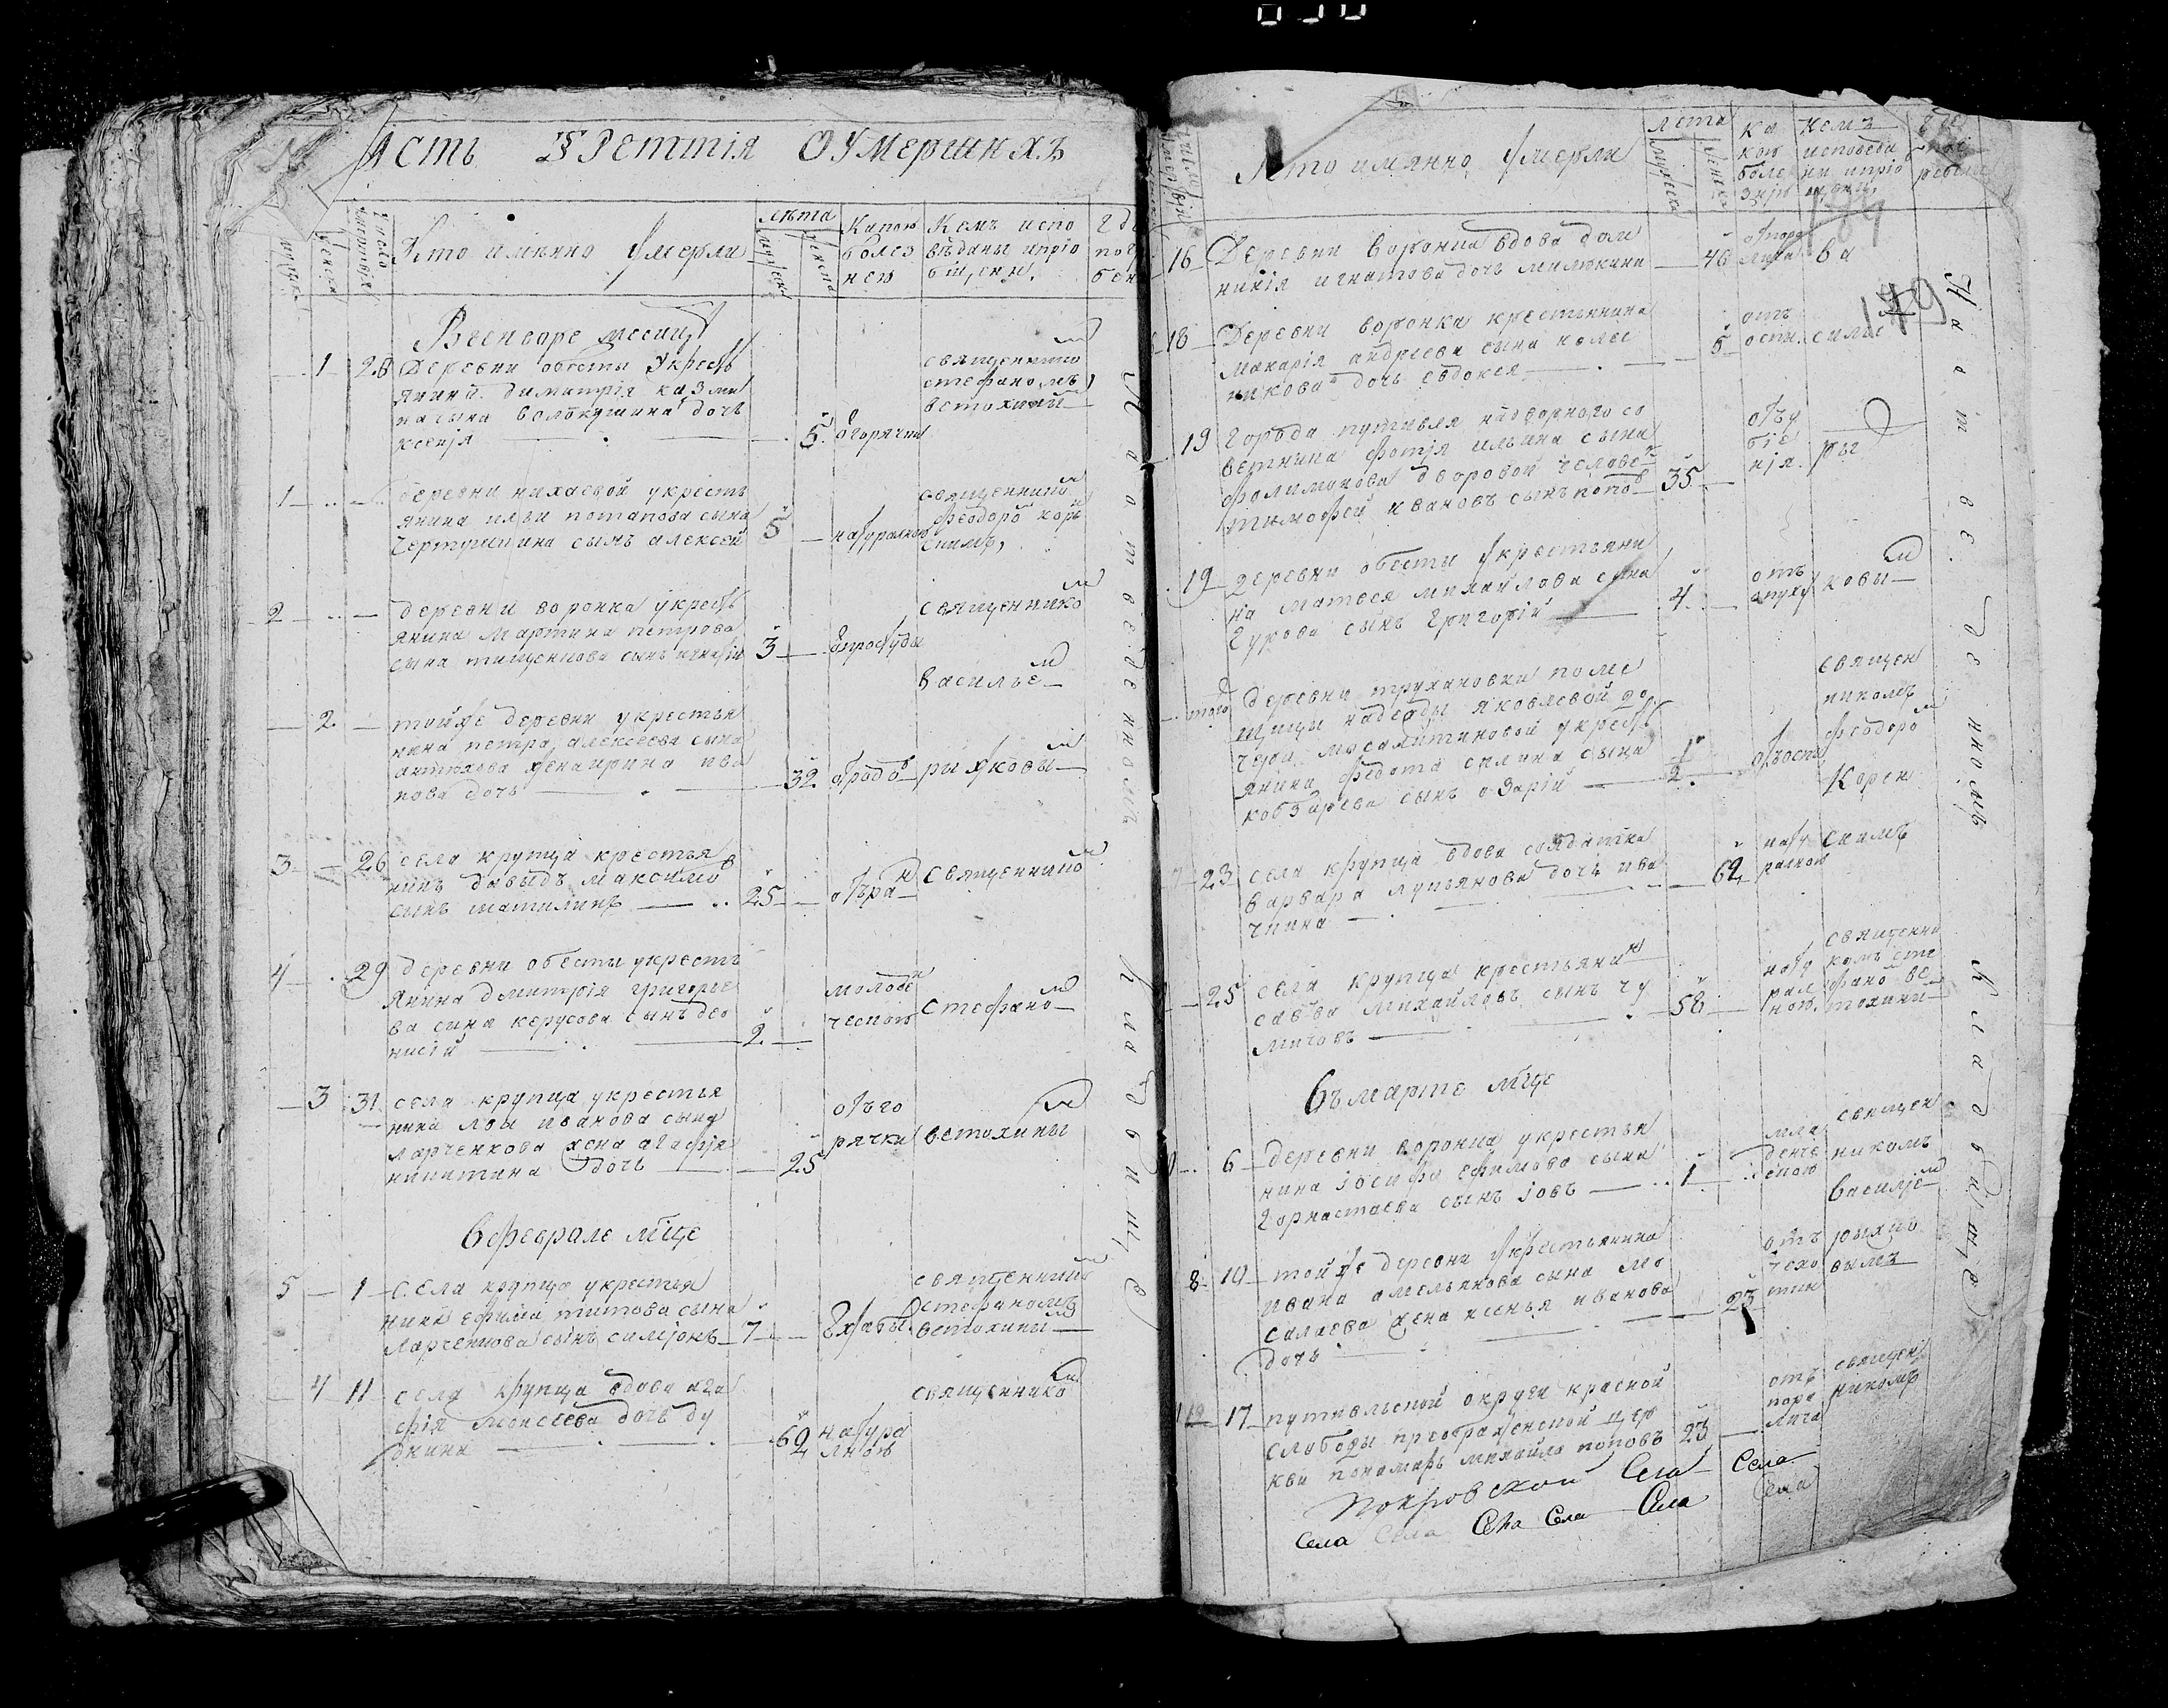 Часть Треттiя О Умершихъ
Кто имянно умерли
лѣта
Какою болез нею
Кемъ испо веданы и прiо бщены
Вгенваре месяцѣ
1 28 Деревни обесты укресть
янина димитрiя казми
на сына волокушина дочь
ксенiя 5 огорячки
священнико
стефаномъ
ветохины
1 деревни нихаевой укресть
янина ильи потапова сына
чертушкина сынъ алексей 5 натуралною
священнико
феодоро коре
скимъ
2 деревни воронка укресть
янина мартина петрова
сына тищенкова сынъ игнатiи 3 опростуды
священнико
василье
2 тойже деревни укрестья
нина петра алексеева сына
антюхова жена ирина ива
нова дочь 32 отродо рыжковы
3 26 села крупца крестья
нинъ давыдъ максимо
сынъ шатилинъ 25 отъра
священнико
4 29 деревни обесты укресть
янина дмитрiя григорье
ва сина керусова сынъ део
нисiй 2
молоде
ческою
стефано
3 31 села крупца укрестья
нина лва иванова сына
ларченкова жена агафiя
никитина дочь 25
отъго
рячки ветохины
вфеврале мцѣ
5 1 Села крупца укрестья
нина ефима титова сына
Ларченкова сынъ симiонъ 7
священнико
стефаномъ
ветохины
4 11 села крупца вдова ага
фiя моисеева дочь ду
дкина 62 натура
лною
священнико
На отведенномъ кладбище
Кто имянно умерли
лета
Ка кою боле знiю
Кемъ исповеда ни и прiо щени
где погребены
184
179
16 Деревни воронка вдова дом
никiя игнатова дочь милюкина 46 отпора
лича ва
18 Деревни воронка крестьянина
макарiя андреева сына колес
никова дочь евдокея 5 отъ
оспи силье
19 Города путивля надворного со
ветника фотiя ильина сына
филимонова дворовой челове
тимофей ивановъ сынъ попо 35
отъу
бiе
нiя ры
19 деревни обесты укрестьяни
на матвея михайлова сына
гукова сынъ григорiй 4 отъ
опуху ковы
того деревни трухановки поме
щицы надежды яковлевой до
чери мусалитиновой укресть
янина федота силина сына
кобзарева сынъ озарiй 1/2 отъоспы
священ
никомъ
феодоро
Корен
скимъ
23 села крупца вдова солдатка
варвара лукьянова дочь ива
чкина 62 нату
ралною
25 села крупца крестьянин
савва михайловъ сынъ чу
мичовъ 58 нату
рал
ною
священни
комъ сте
фано ве
тохини
въ марте мцѣ
6 деревни воронка укрестья
нина iосифа ефимова сына
горностаева сынъ iовъ 1 мла
денче
скою
священ
никомъ
василiе
8 10 тойже деревни укрестьянина
ивана амельянова сына мо
салаева жена ксенья иванова
дочь 23 отъ
чехо
тки
рыжко
вымъ
17 путивльской округи красной
слободы преображенской цер
кви пономарь михайло поповъ 23 отъ
пара
лича
священ
никомъ
На отведенномъ кладбище
Покровской Села Села
Села Села Села Села Села Села